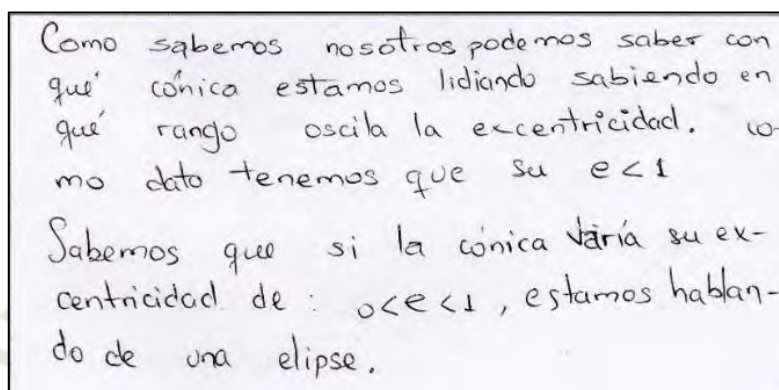 Como sabemos nosotros podemos saber con
qué cónica estamos lidiando sabiendo en
qué rango oscila la excentricidad. co-
mo dato tenemos que su e < 1
Sabemos que si la cónica varía su ex-
centricidad de : 0<e<1, estamos hablan-
do de una elipse.